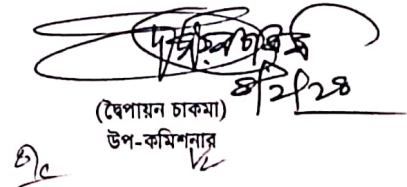 ৪/২/২৪
(দ্বৈপায়ন চাকমা)
উপ-কমিশনার